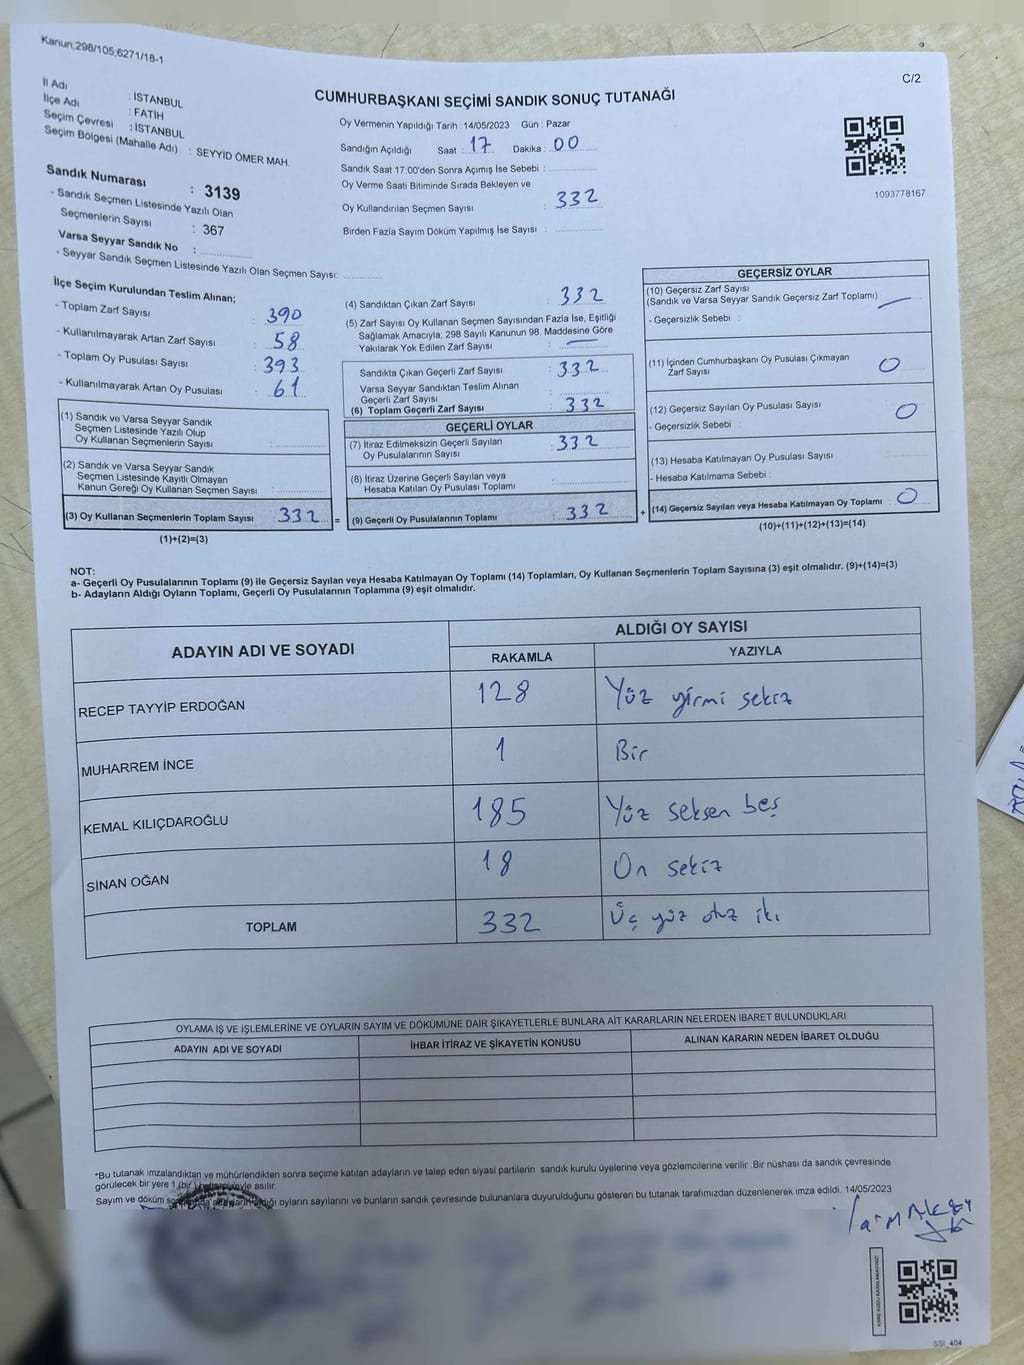 Kanun;298/105,6271/18-1
C/2
İl Adı : İSTANBUL
İlçe Adı : FATİH
Seçim Çevresi : İSTANBUL
Seçim Bölgesi (Mahalle Adı) : SEYYİD ÖMER MAH.
Sandık Numarası : 3139
- Sandık Seçmen Listesinde Yazılı Olan
Seçmenlerin Sayısı : 367
Varsa Seyyar Sandık No :
- Seyyar Sandık Seçmen Listesinde Yazılı Olan Seçmen Sayısı:
CUMHURBAŞKANI SEÇİMİ SANDIK SONUÇ TUTANAĞI
Oy Vermenin Yapıldığı Tarih : 14/05/2023 Gün : Pazar
Sandığın Açıldığı Saat : 17 Dakika : 00
Sandık Saat 17:00'den Sonra Açımış İse Sebebi :
Oy Verme Saati Bitiminde Sırada Bekleyen ve
Oy Kullandırılan Seçmen Sayısı : 332
Birden Fazla Sayım Döküm Yapılmış İse Sayısı :
1093778167
İlçe Seçim Kurulundan Teslim Alınan;
- Toplam Zarf Sayısı : 390
- Kullanılmayarak Artan Zarf Sayısı : 58
- Toplam Oy Pusulası Sayısı : 393
- Kullanılmayarak Artan Oy Pusulası : 61
(1) Sandık ve Varsa Seyyar Sandık
Seçmen Listesinde Yazılı Olup
Oy Kullanan Seçmenlerin Sayısı :
(2) Sandık ve Varsa Seyyar Sandık
Seçmen Listesinde Kayıtlı Olmayan
Kanun Gereği Oy Kullanan Seçmen Sayısı :
(3) Oy Kullanan Seçmenlerin Toplam Sayısı 332 =
(1)+(2)=(3)
(4) Sandıktan Çıkan Zarf Sayısı : 332
(5) Zarf Sayısı Oy Kullanan Seçmen Sayısından Fazla İse, Eşitliği
Sağlamak Amacıyla, 298 Sayılı Kanunun 98. Maddesine Göre
Yakılarak Yok Edilen Zarf Sayısı : —
Sandıkta Çıkan Geçerli Zarf Sayısı : 332
Varsa Seyyar Sandıktan Teslim Alınan
Geçerli Zarf Sayısı :
(6) Toplam Geçerli Zarf Sayısı : 332
GEÇERLİ OYLAR
(7) İtiraz Edilmeksizin Geçerli Sayılan : 332
Oy Pusulalarının Sayısı
(8) İtiraz Üzerine Geçerli Sayılan veya
Hesaba Katılan Oy Pusulası Toplamı :
(9) Geçerli Oy Pusulalarının Toplamı : 332 +
GEÇERSİZ OYLAR
(10) Geçersiz Zarf Sayısı
(Sandık ve Varsa Seyyar Sandık Geçersiz Zarf Toplamı) —
- Geçersizlik Sebebi :
(11) İçinden Cumhurbaşkanı Oy Pusulası Çıkmayan
Zarf Sayısı 0
(12) Geçersiz Sayılan Oy Pusulası Sayısı 0
- Geçersizlik Sebebi :
(13) Hesaba Katılmayan Oy Pusulası Sayısı
- Hesaba Katılmama Sebebi :
(14) Geçersiz Sayılan veya Hesaba Katılmayan Oy Toplamı : 0
(10)+(11)+(12)+(13)=(14)
NOT:
a- Geçerli Oy Pusulalarının Toplamı (9) ile Geçersiz Sayılan veya Hesaba Katılmayan Oy Toplamı (14) Toplamları, Oy Kullanan Seçmenlerin Toplam Sayısına (3) eşit olmalıdır. (9)+(14)=(3)
b- Adayların Aldığı Oyların Toplamı, Geçerli Oy Pusulalarının Toplamına (9) eşit olmalıdır.
ADAYIN ADI VE SOYADI
ALDIĞI OY SAYISI
RAKAMLA YAZIYLA
RECEP TAYYİP ERDOĞAN 128 Yüz yirmi sekiz
MUHARREM İNCE 1 Bir
KEMAL KILIÇDAROĞLU 185 Yüz seksen beş
SİNAN OĞAN 18 On sekiz
TOPLAM 332 Üç yüz otuz iki
OYLAMA İŞ VE İŞLEMLERİNE VE OYLARIN SAYIM VE DÖKÜMÜNE DAİR ŞİKAYETLERLE BUNLARA AİT KARARLARIN NELERDEN İBARET BULUNDUKLARI
ADAYIN ADI VE SOYADI İHBAR İTİRAZ VE ŞİKAYETİN KONUSU ALINAN KARARIN NEDEN İBARET OLDUĞU
*Bu tutanak imzalandıktan ve mühürlendikten sonra seçime katılan adayların ve talep eden siyasi partilerin sandık kurulu üyelerine veya gözlemcilerine verilir .Bir nüshası da sandık çevresinde
görülecek bir yere 1 (bir) asılır.
Sayım ve döküm oyların sayılarını ve bunların sandık çevresinde bulunanlara duyurulduğunu gösteren bu tutanak tarafımızdan düzenlenerek imza edildi. 14/05/2023